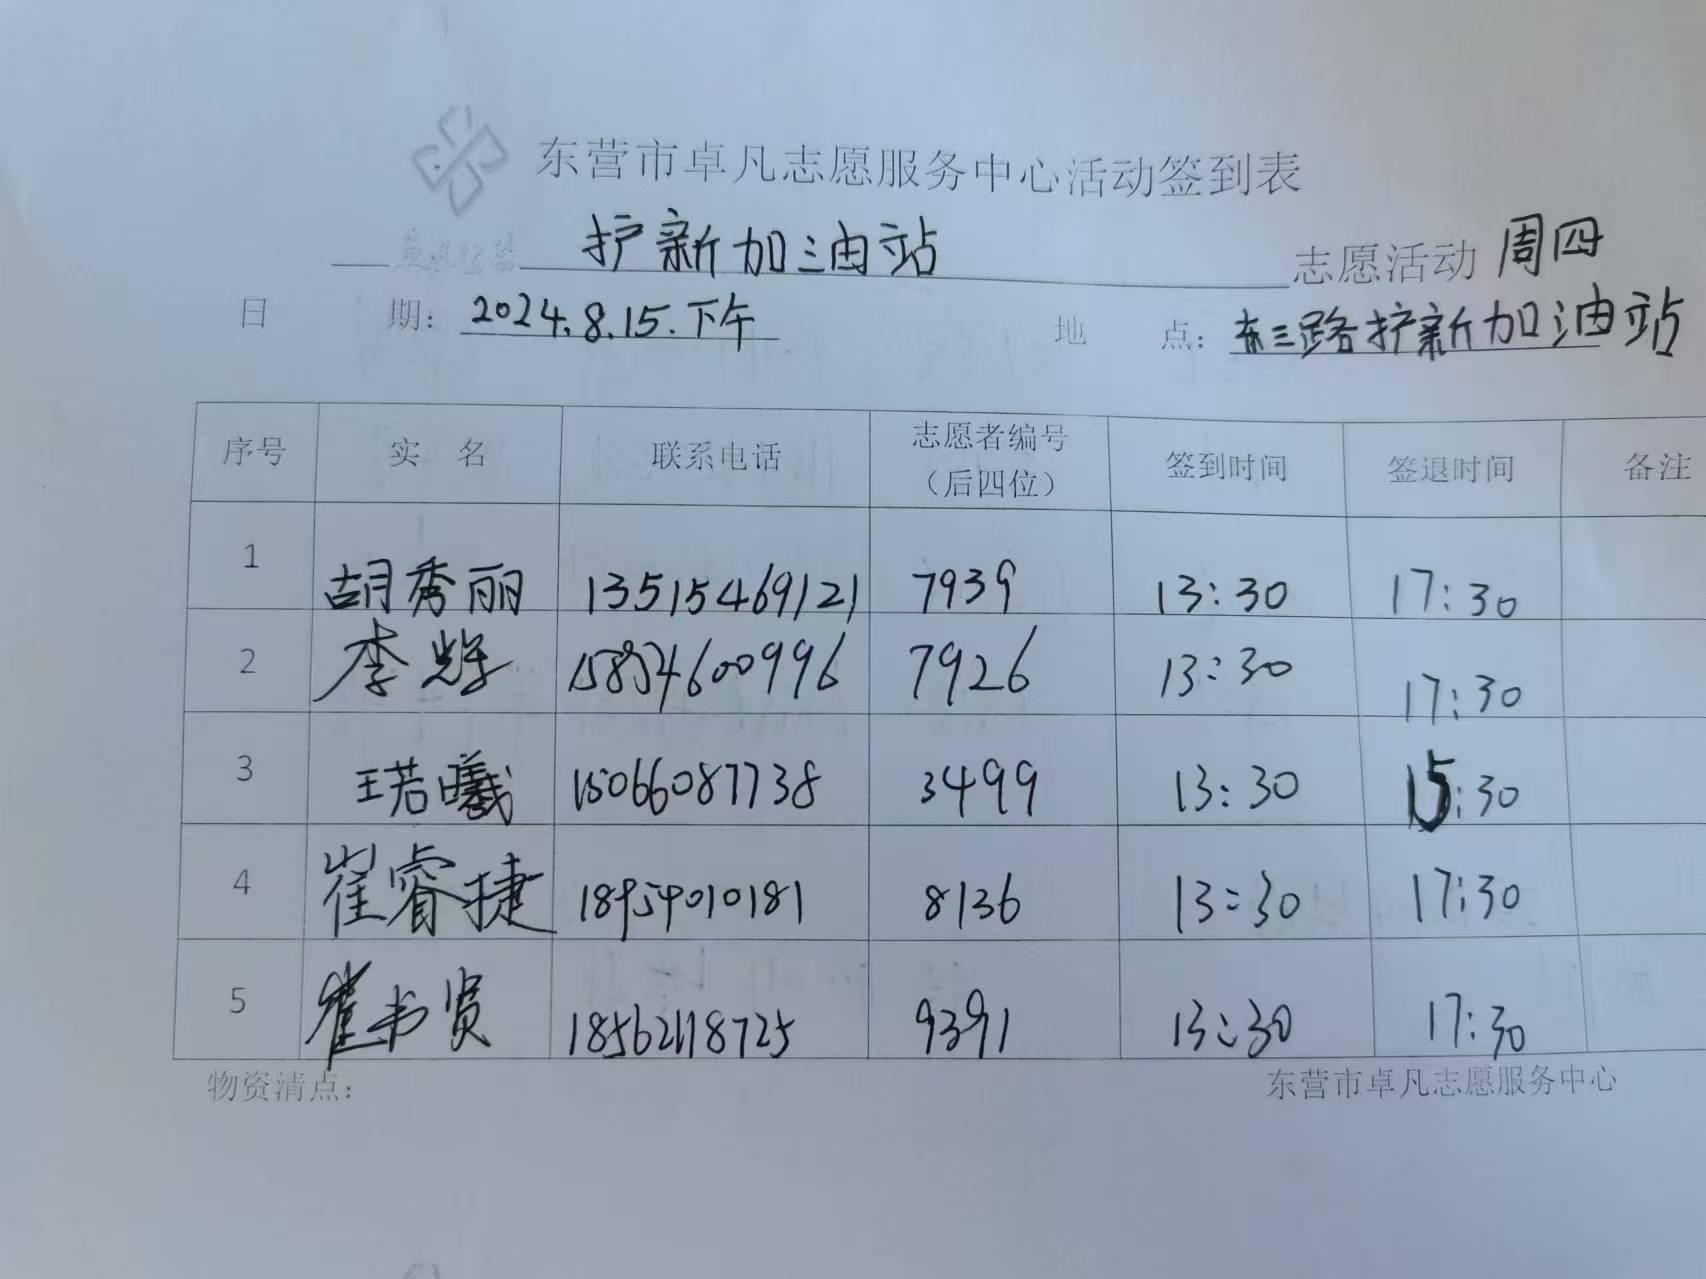 东营市卓凡志愿服务中心活动签到表
护新加油站 志愿活动 周四
日 期: 2024.8.15.下午 地 点: 东三路护新加油站
序号 实 名 联系电话 志愿者编号（后四位） 签到时间 签退时间 备注
1 胡秀丽 13515469121 7939 13:30 17:30
2 李辉 15854600996 7926 13:30 17:30
3 王若曦 15066087738 3499 13:30 15:30
4 崔睿捷 18954010181 8136 13:30 17:30
5 崔书贤 18562118725 9391 13:30 17:30
物资清点: 东营市卓凡志愿服务中心